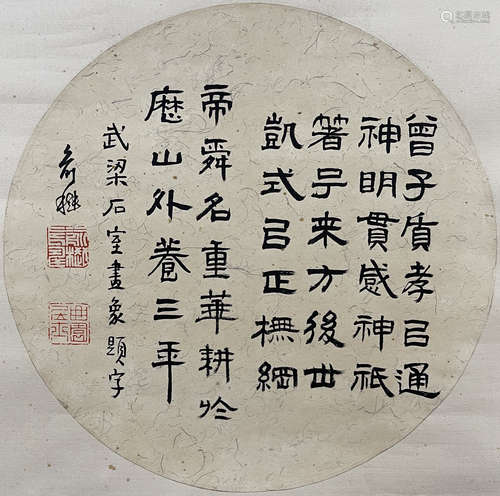 曾子質孝㠯通
神明貫感神祇
箸号来方後世
凱式㠯正橅綱
帝舜名重華耕於
歷山外養三年
武梁石室畫象題字